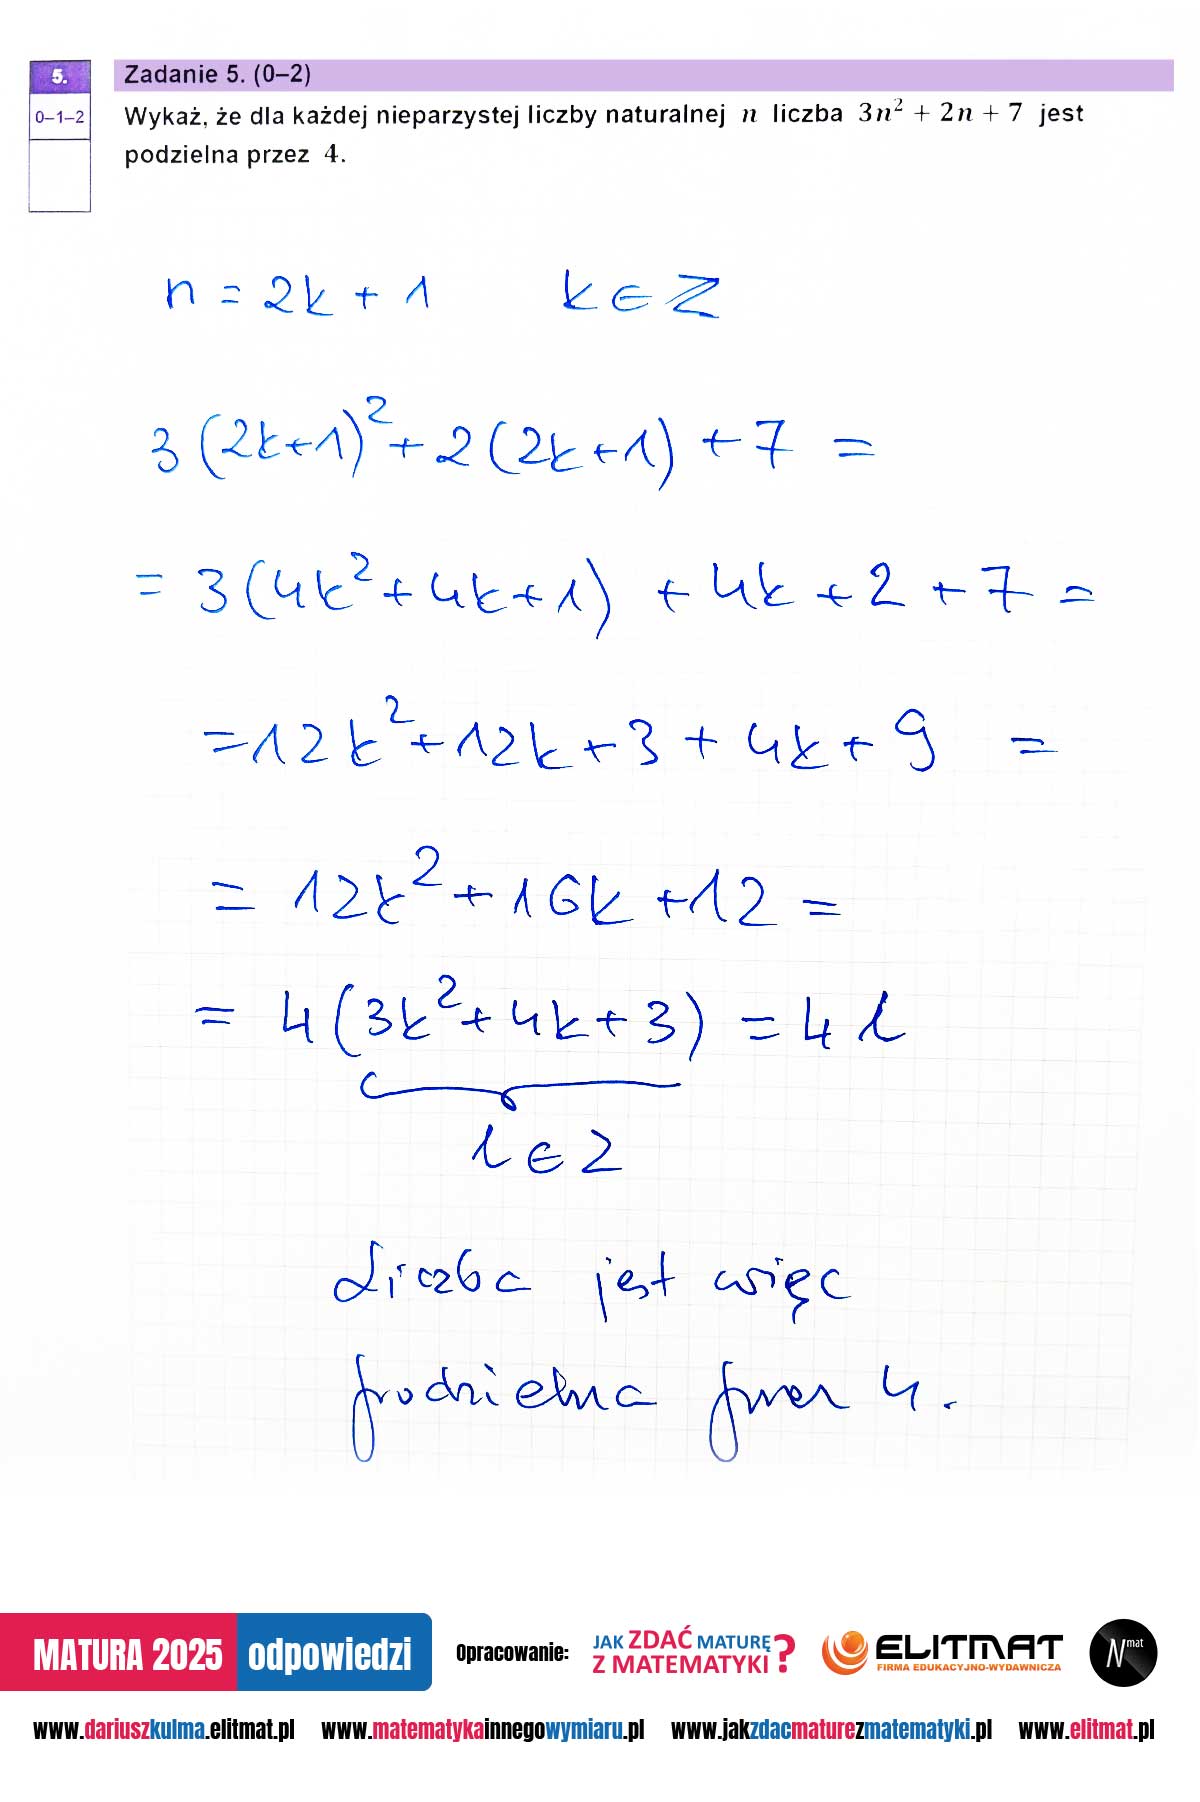 5.
Zadanie 5. (0–2)
0–1–2
Wykaż, że dla każdej nieparzystej liczby naturalnej n liczba 3n² + 2n + 7 jest
podzielna przez 4.
n = 2k + 1 k ∈ Z
3(2k+1)² + 2(2k+1) + 7 =
= 3(4k² + 4k + 1) + 4k + 2 + 7 =
= 12k² + 12k + 3 + 4k + 9 =
= 12k² + 16k + 12 =
= 4(3k² + 4k + 3) = 4l
l ∈ Z
Liczba jest więc
podzielna przez 4.
MATURA 2025 odpowiedzi
Opracowanie:
JAK ZDAĆ MATURĘ
Z MATEMATYKI?
ELITMAT
FIRMA EDUKACYJNO-WYDAWNICZA
Nmat
www.dariuszkulma.elitmat.pl www.matematykainnegowymiaru.pl www.jakzdacmaturezmatematyki.pl www.elitmat.pl